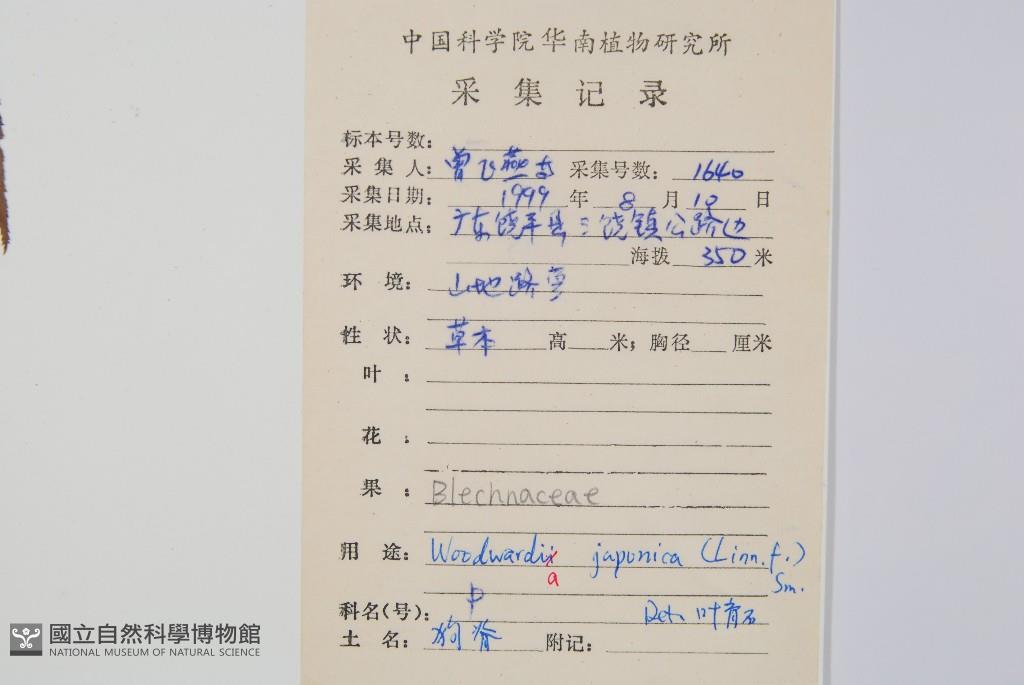 中国科学院华南植物研究所
采集记录
标本号数：
采集人：曾飞燕等 采集号数：1640
采集日期：1999年8月10日
采集地点：广东饶平县三饶镇公路边
海拨 350米
环境：山地路旁
性状：草本 高 米；胸径 厘米
叶：
花：
果：Blechnaceae
用途：Woodwardix japonica (Linn.f.)
a
Sm.
科名(号)：P Det. 叶育石
土名：狗脊 附记：
國立自然科學博物館
NATIONAL MUSEUM OF NATURAL SCIENCE